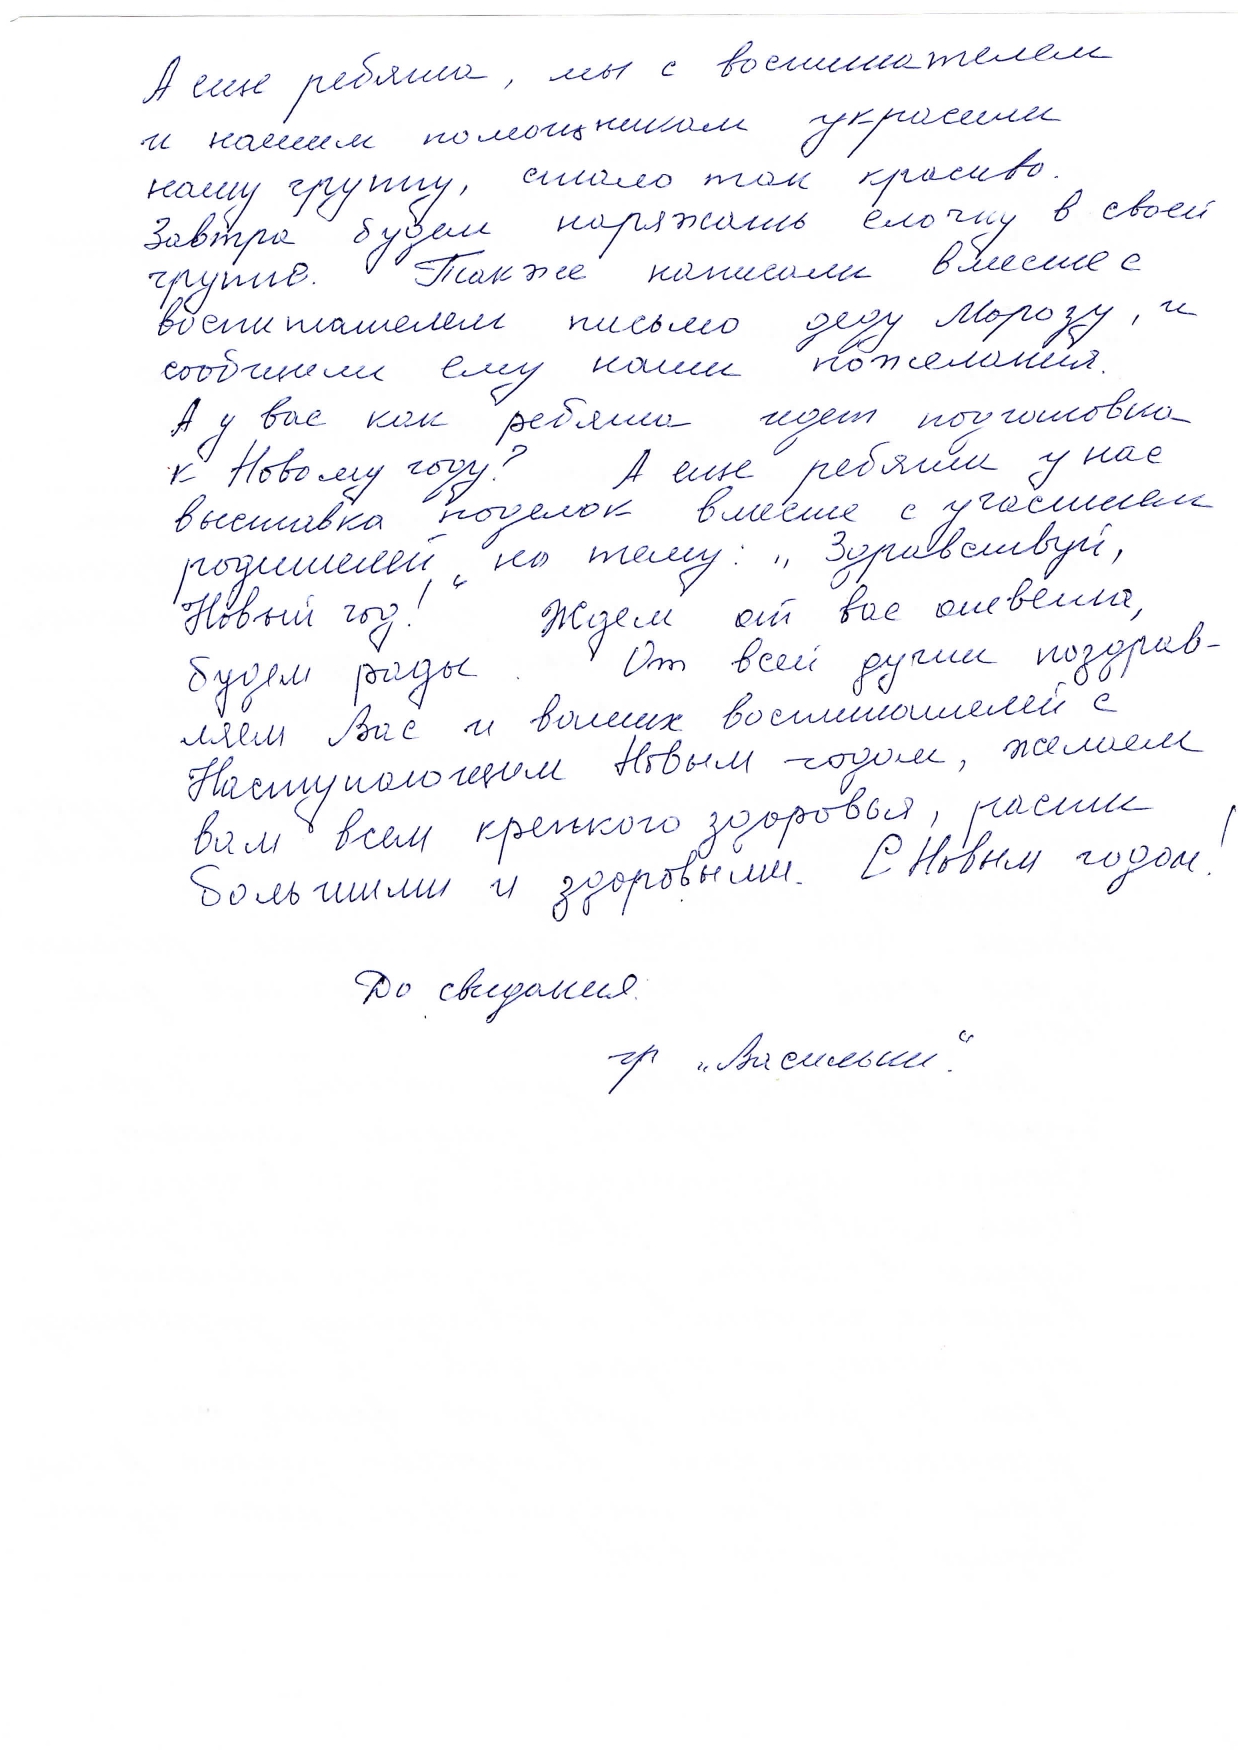 А еще ребята, мы с воспитателем
и нашим помощником украсили
нашу группу, стало так красиво.
Завтра будем наряжать елочку в своей
группе. Также написали вместе с
воспитателем письмо деду Морозу, и
сообщили ему наши пожелания.
А у вас как ребята идет подготовка
к Новому году? А еще ребята у нас
выставка поделок вместе с участием
родителей на тему: „Здравствуй,
Новый год!“ Ждем от вас ответа,
будем рады. От всей души поздрав-
ляем Вас и ваших воспитателей с
Наступающим Новым годом, желаем
вам всем крепкого здоровья, расти
большими и здоровыми. С Новым годом!
До свидания.
гр „Васильки“.